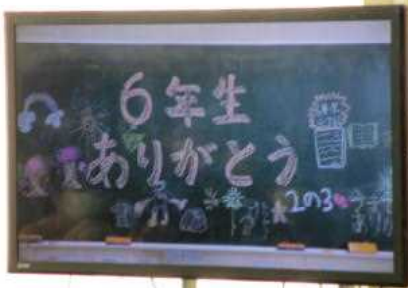 6年生
ありがとう
2の3